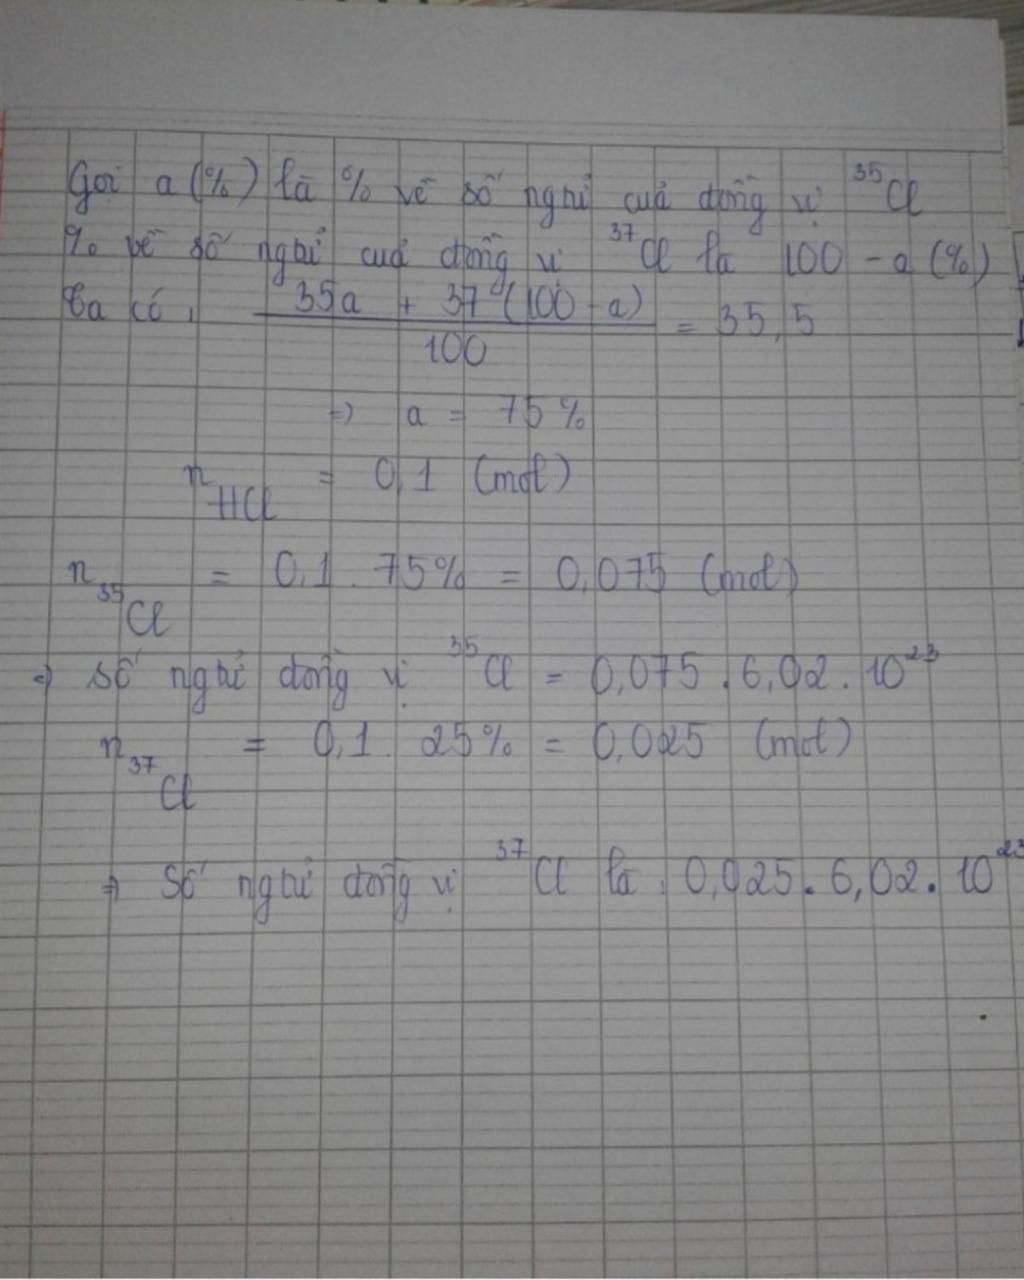 Gọi a (%) là % về số ngtử của đồng vị ³⁵Cl
% về số ngtử của đồng vị ³⁷Cl là 100 - a (%)
Ta có, (35a + 37(100 - a))/100 = 35,5
=> a = 75%
n HCl = 0,1 (mol)
n ³⁵Cl = 0,1 . 75% = 0,075 (mol)
=> số ngtử đồng vị ³⁵Cl = 0,075 . 6,02 . 10²³
n ³⁷Cl = 0,1 . 25% = 0,025 (mol)
=> Số ngtử đồng vị ³⁷Cl là . 0,025 . 6,02 . 10²³